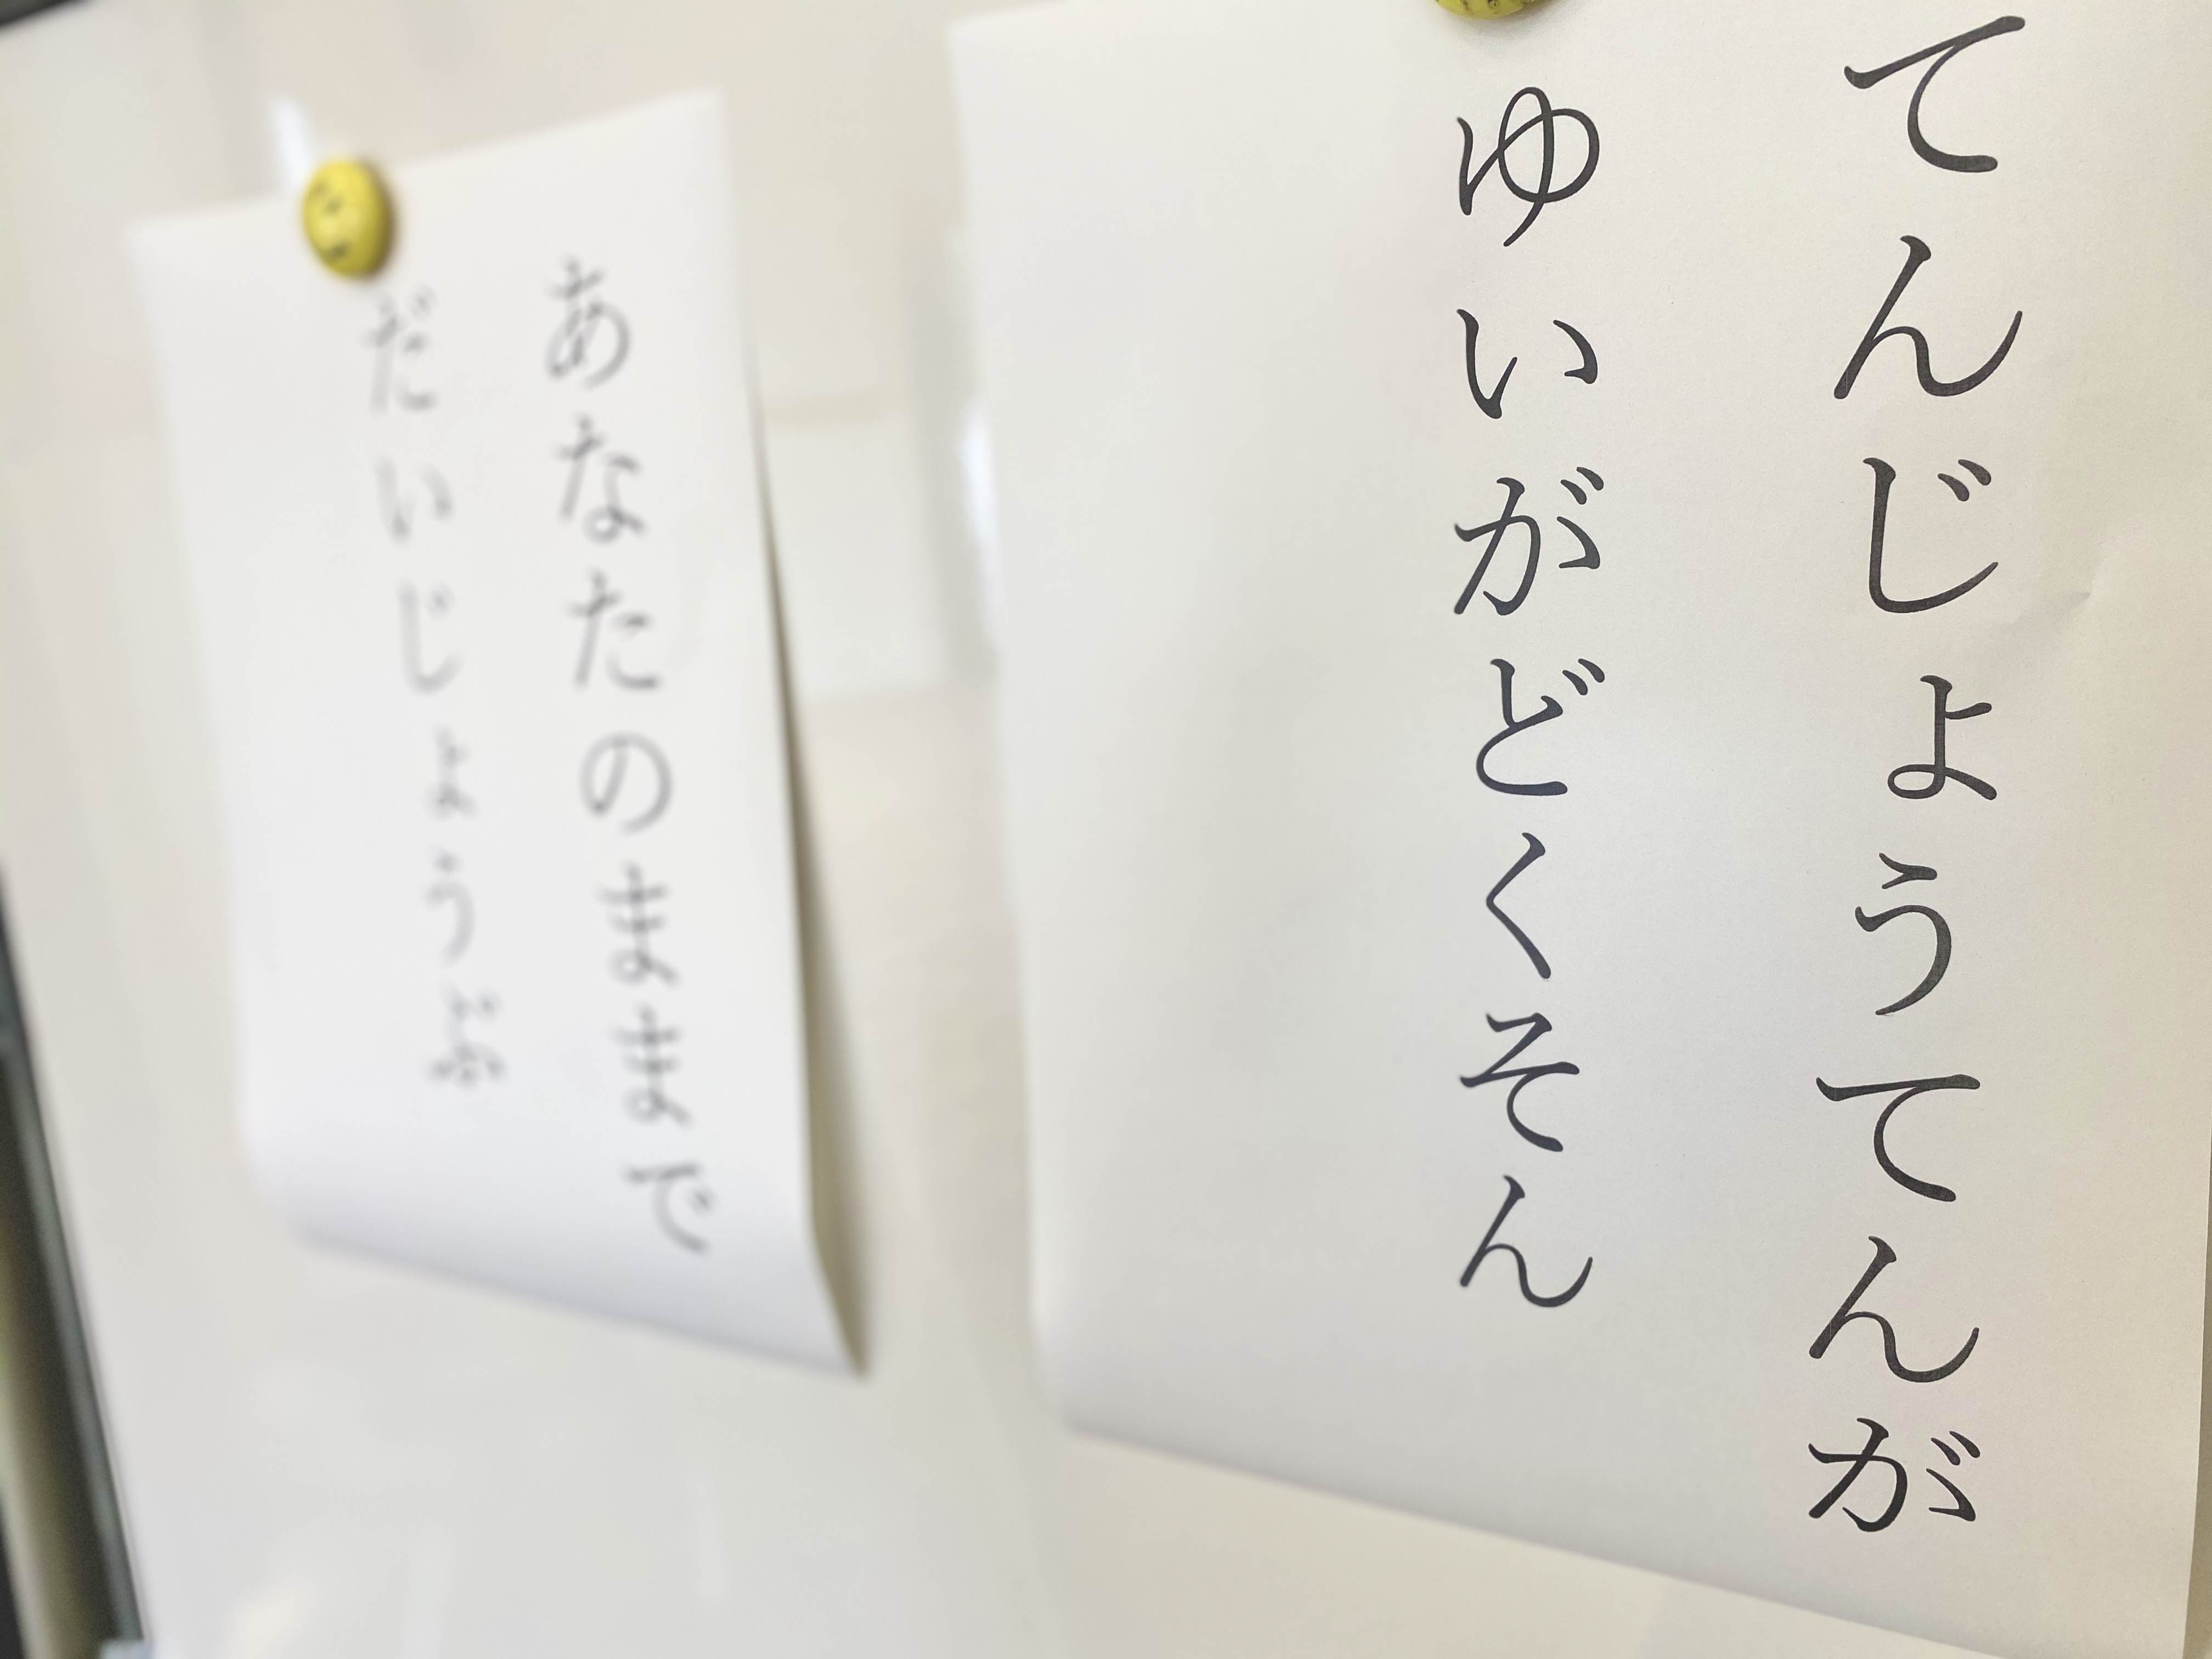 てんじょうてんが
ゆいがどくそん
あなたのままで
だいじょうぶ